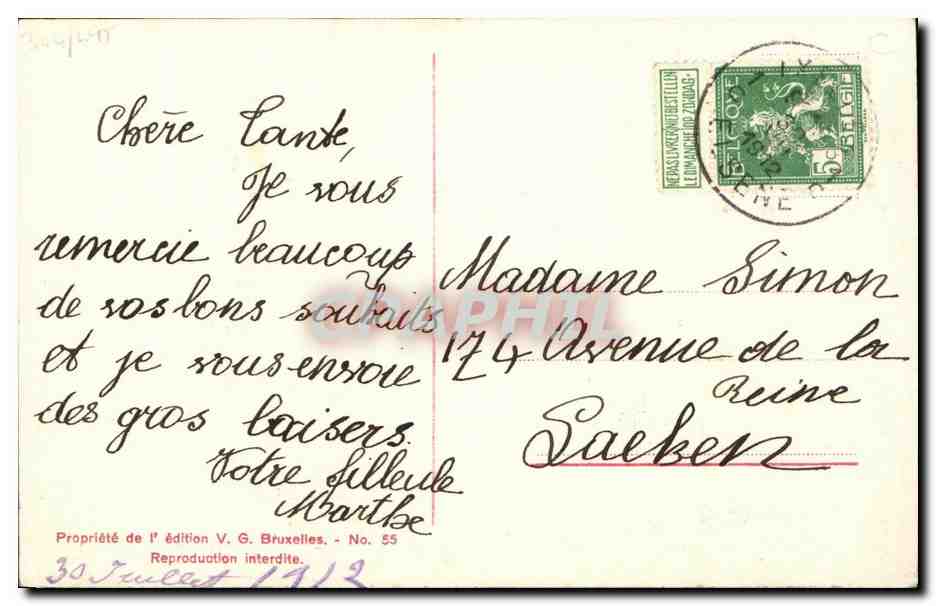 Chère Tante,
Je vous
remercie beaucoup
de vos bons souhaits
et je vous envoie
des gros baisers.
Votre filleule
Marthe
Propriété de l' édition V. G. Bruxelles. - No. 55
Reproduction interdite.
30 Juillet 1912
NE PAS LIVRER NIET BESTELLEN
LE DIMANCHE OP ZONDAG
BELGIQUE
BELGIË
5c
1912
Madame Simon
174 Avenue de la
Reine
Laeken
CPAPHIL